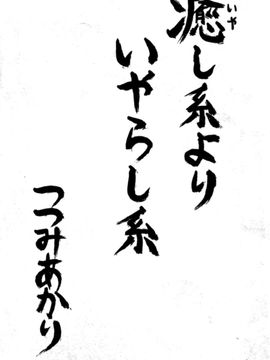 癒し系より
いやらし系
つつみあかり